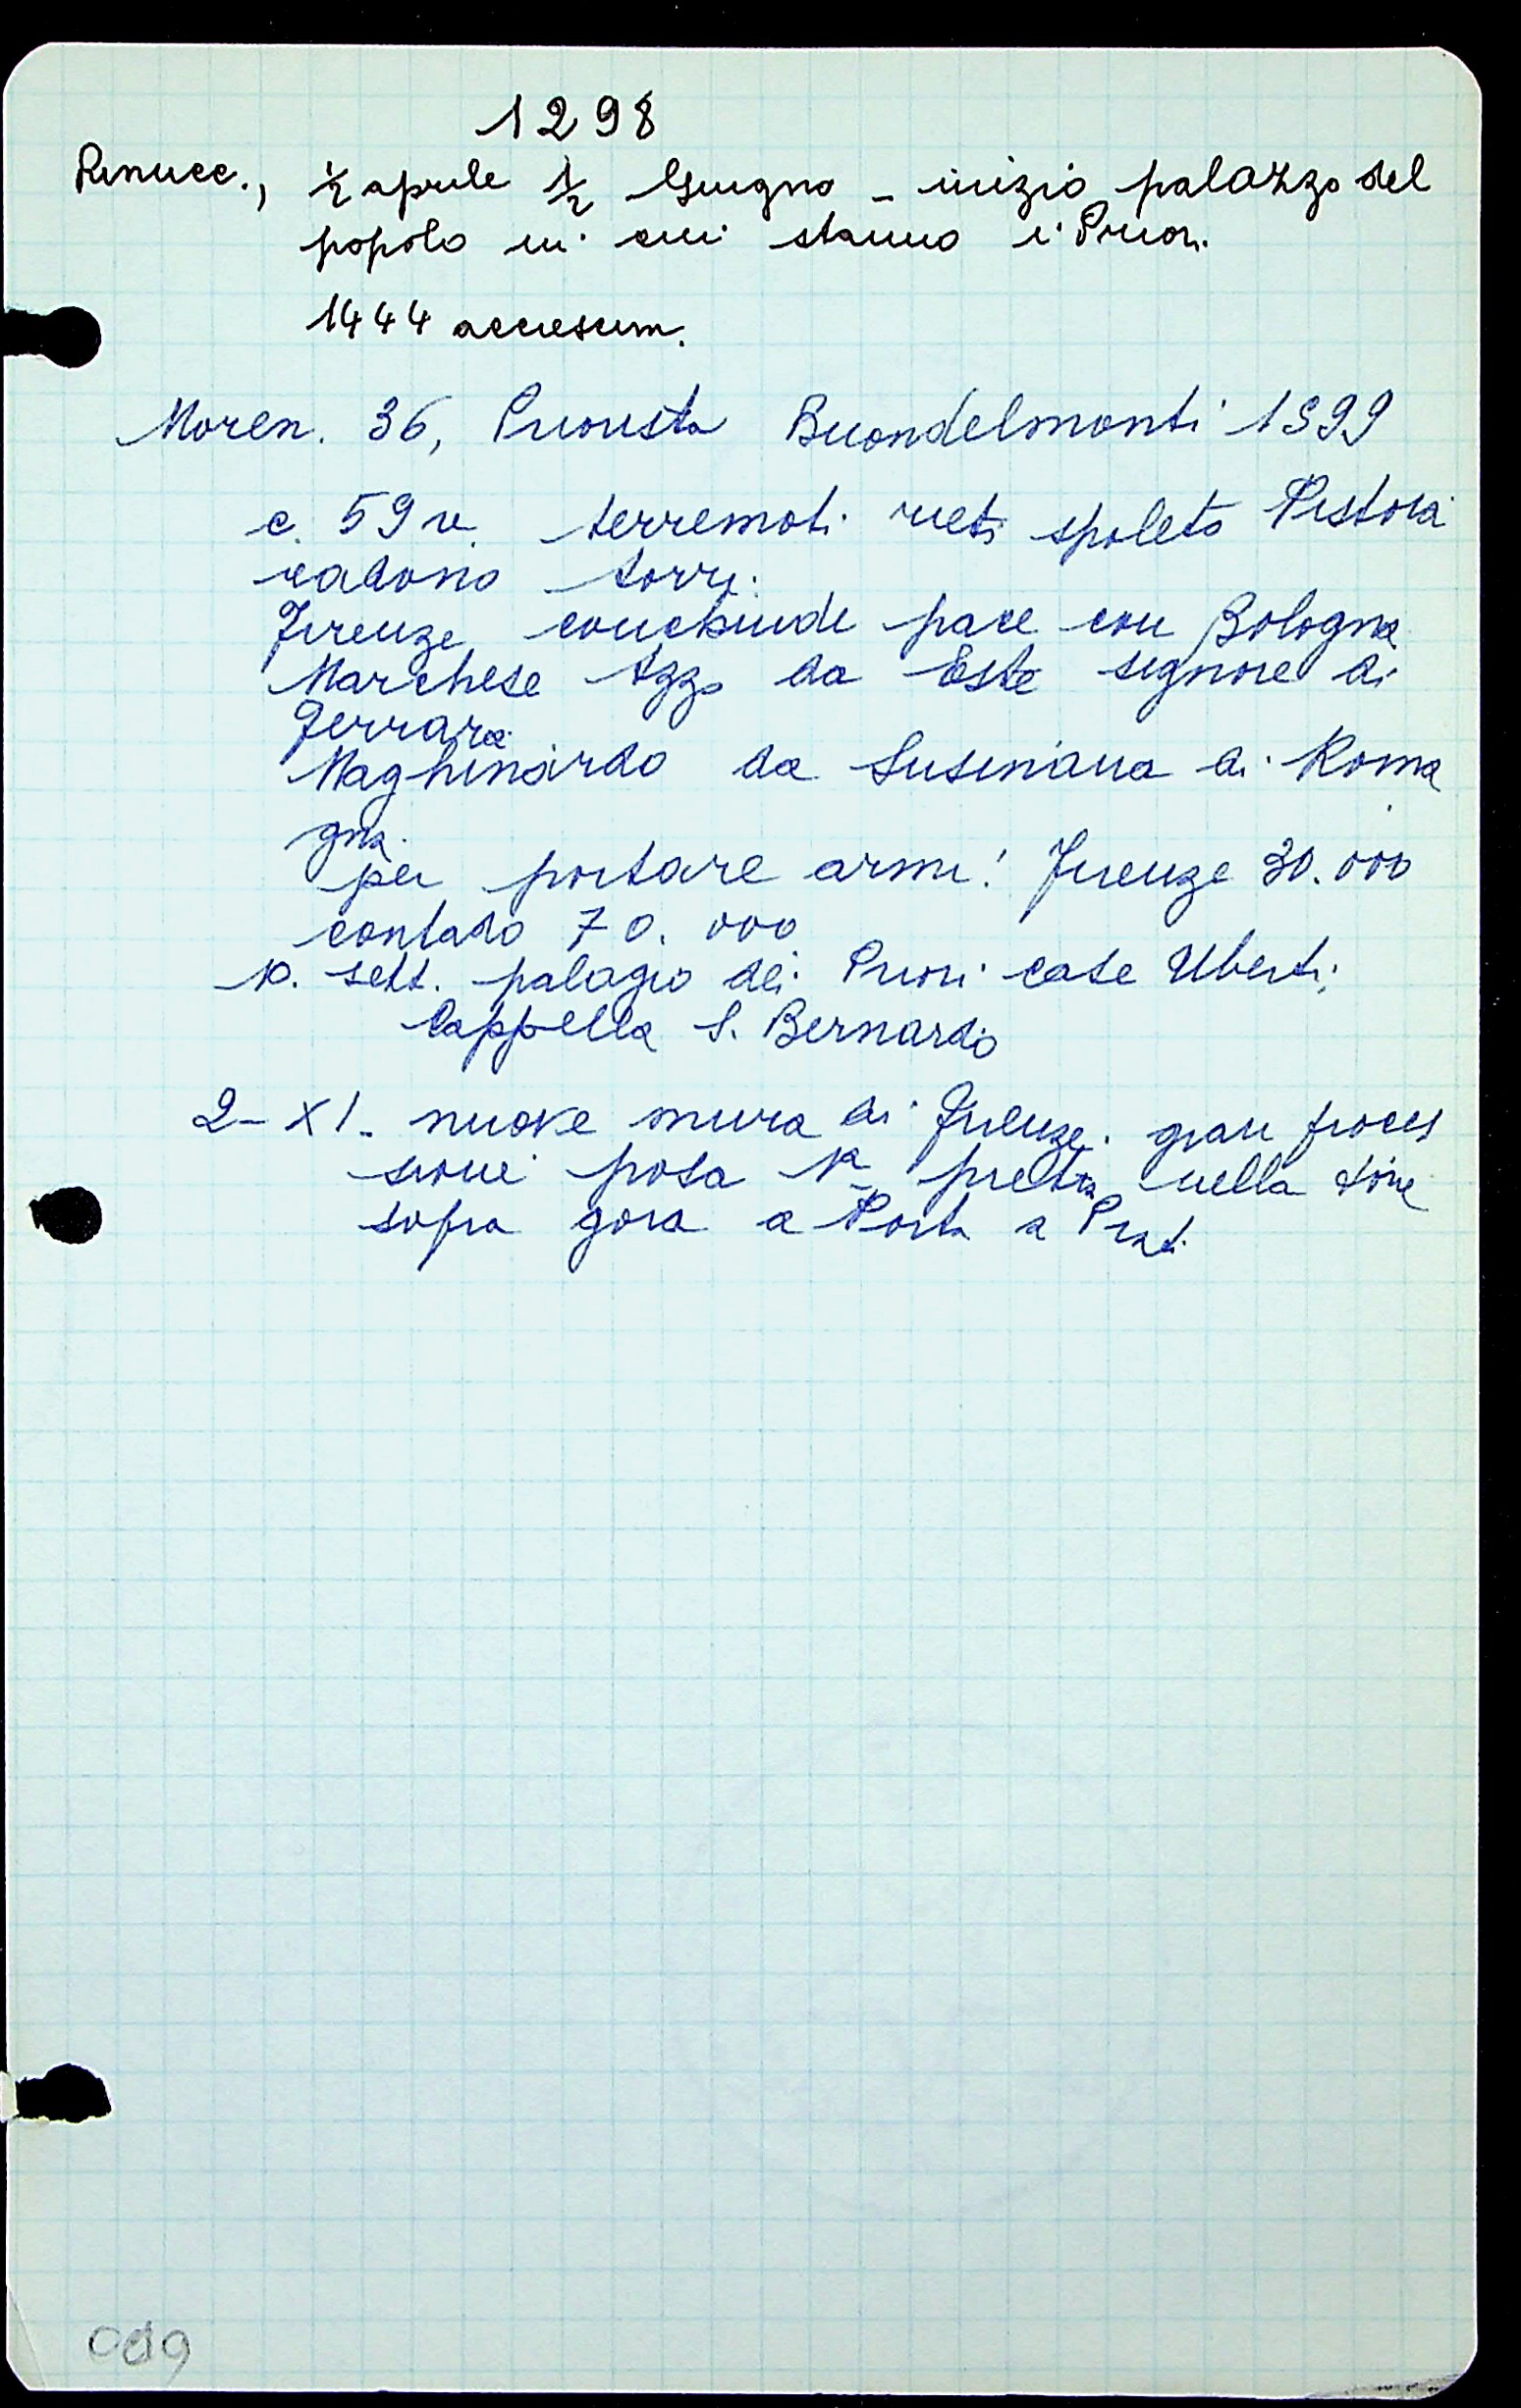 1298
Rinucc., ½ aprile ½ Giugno - inizio palazzo del
popolo in cui stanno i Priori.
1444 accrescim.
Moren. 36, Priorista Buondelmonti 1399
c. 59 v. terremoti rieti spoleto Pistoia
cadono torri.
Firenze conchiude pace con Bologna
Marchese Azzo da Este signore di
Ferrara
Maghinardo da Susinana di Roma
gna.
per portare armi! Firenze 30.000
contado 70.000
10. sett. palagio dei Priori case Uberti,
Cappella S. Bernardo
2-XI. nuove mura di Firenze. gran proces
sione posa 1ª pietra nella torre
sopra gora a Porta a Prat.
009